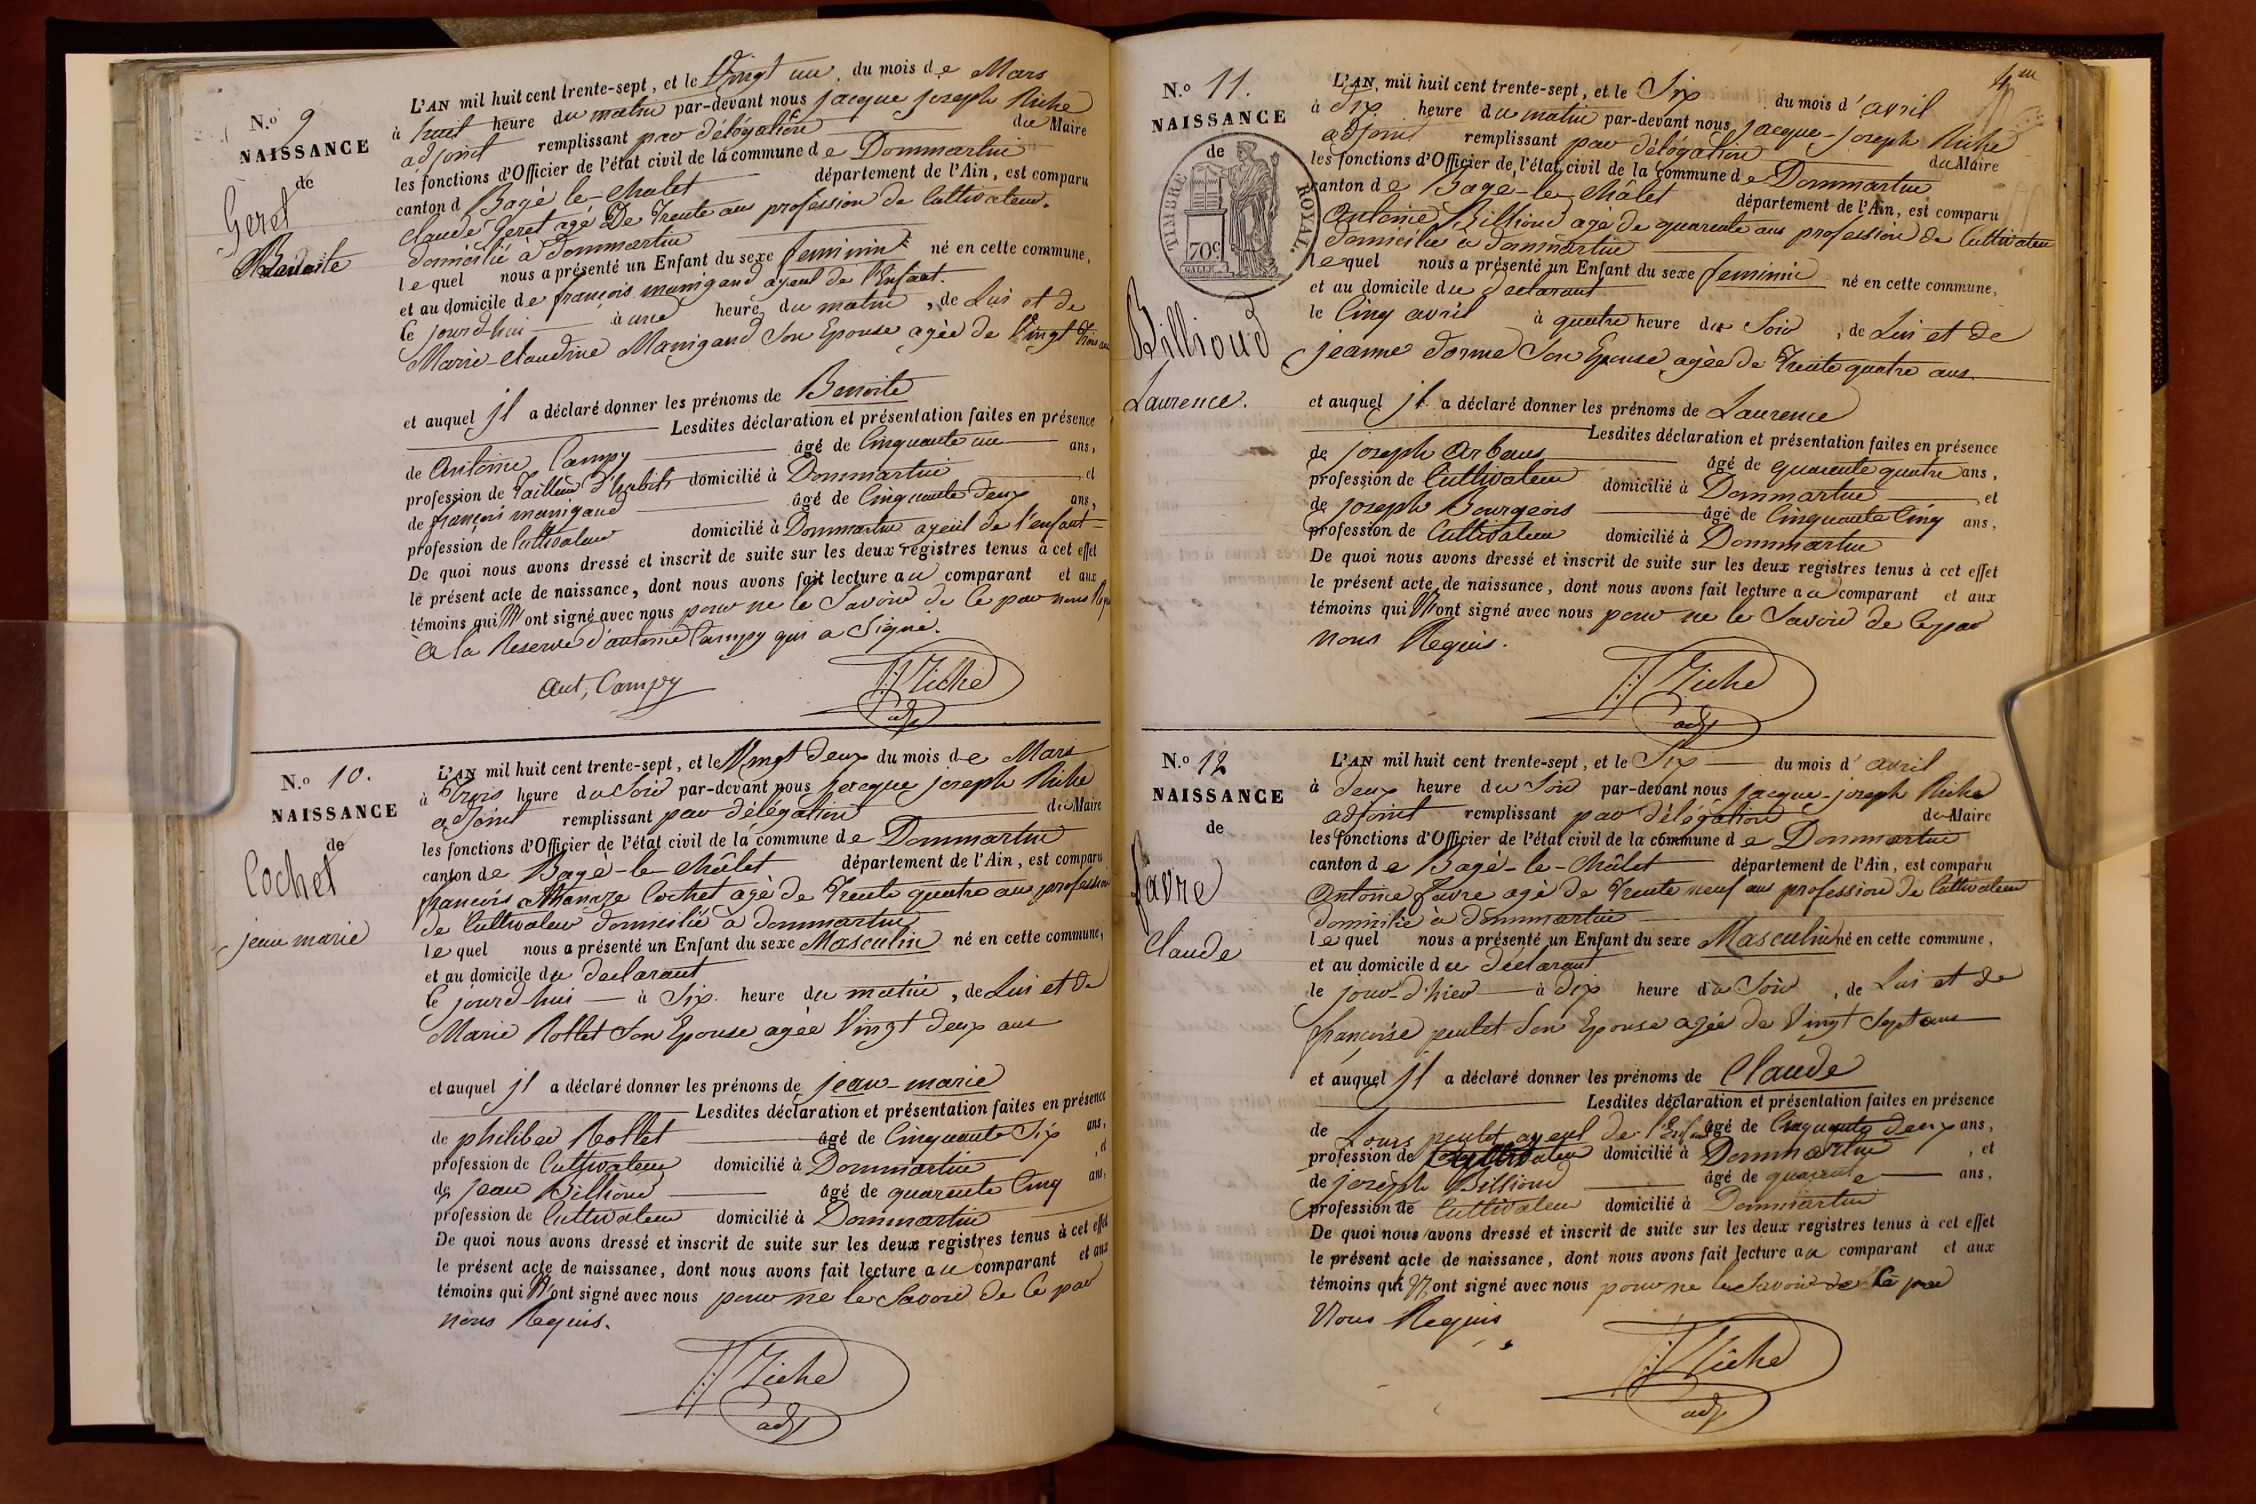 N.o 9
NAISSANCE
de
Geret
Benoite
L'AN mil huit cent trente-sept, et le Vingt un du mois de Mars
à huit heure du matin par-devant nous jacque joseph Riche
adjoint remplissant par délégation du Maire
les fonctions d'Officier de l'état civil de la commune de Dommartin
canton d Bagé le-Chalet département de l'Ain, est comparu
Claude Geret agé De Trente ans profession de Cultivateur.
domicilié à dommartin
lequel nous a présenté un Enfant du sexe feminin né en cette commune,
et au domicile de françois manigand ayeul de l'Enfant.
le jourd-hui à une heure du matin, de Lui et de
Marie-Claudine Manigand Son Epouse agèe de Vingt Trois ans
et auquel jl a déclaré donner les prénoms de Benoite
Lesdites déclaration et présentation faites en présence
de Antoine Campy âgé de Cinquante un ans,
profession de Tailleur d'habits domicilié à Dommartin et
de françois manigand âgé de Cinquante deux ans,
profession de Cultivateur domicilié à Dommartin ayeul de l'enfant
De quoi nous avons dressé et inscrit de suite sur les deux registres tenus à cet effet
le présent acte de naissance, dont nous avons fait lecture au comparant et aux
témoins qui N'ont signé avec nous pour ne le Savoir de Ce par nous
à la Reserve d'antoine Campy qui a Signé.
Ant, Campy
Riche
adj
N.o 10.
NAISSANCE
de
Cochet
jean marie
L'AN mil huit cent trente-sept, et le Vingt deux du mois de Mars
à Trois heure du Soir par-devant nous jacque joseph Riche
adjoint remplissant par délégation du Maire
les fonctions d'Officier de l'état civil de la commune de Dommartin
canton de Bagé-le-Châlet département de l'Ain, est comparu
francois Athanaze Cochet agé de Trente quatre ans profession
de Cultivateur domicilié à dommartin
lequel nous a présenté un Enfant du sexe Masculin né en cette commune,
et au domicile du declarant
le jourd-hui à Six heure du matin, de Lui et de
Marie Rollet Son Epouse agèe Vingt deux ans
et auquel jl a déclaré donner les prénoms de jean-marie
Lesdites déclaration et présentation faites en présence
de philiber Rollet âgé de Cinquante Six ans,
profession de Cultivateur domicilié à Dommartin, et
de jean Billioud âgé de quarente Cinq ans,
profession de Cultivateur domicilié à Dommartin
De quoi nous avons dressé et inscrit de suite sur les deux registres tenus à cet effet
le présent acte de naissance, dont nous avons fait lecture au comparant et aux
témoins qui N'ont signé avec nous pour ne le Savoir de Ce par
nous Requis.
Riche
adj
N.o 11.
NAISSANCE
de
TIMBRE ROYAL
70c
Billioud
Laurence.
L'AN, mil huit cent trente-sept, et le Six du mois d'avril
à Dix heure du matin par-devant nous jacque-joseph Riche
adjoint remplissant par délégation du Maire
les fonctions d'Officier de l'état civil de la commune de Dommartin
canton de Bagé-le-Châlet département de l'Ain, est comparu
Antoine Billioud agé de quarente ans profession de Cultivateur
domicilié à dommartin
lequel nous a présenté un Enfant du sexe feminin né en cette commune,
et au domicile du declarant
le Cinq avril à quatre heure du Soir, de Lui et de
jeanne donne Son Epouse agèe de Trente quatre ans
et auquel jl a déclaré donner les prénoms de Laurence
Lesdites déclaration et présentation faites en présence
de joseph Arbans âgé de quarente quatre ans,
profession de Cultivateur domicilié à Dommartin, et
de joseph Bourgeois âgé de Cinquante Cinq ans,
profession de Cultivateur domicilié à Dommartin
De quoi nous avons dressé et inscrit de suite sur les deux registres tenus à cet effet
le présent acte de naissance, dont nous avons fait lecture au comparant et aux
témoins qui N'ont signé avec nous pour ne le Savoir de Ce par
nous Requis.
Riche
adj
N.o 12
NAISSANCE
de
favre
Claude
L'AN mil huit cent trente-sept, et le Six du mois d'avril
à Deux heure du Soir par-devant nous jacque-joseph Riche
adjoint remplissant par délégation du Maire
les fonctions d'Officier de l'état civil de la commune de Dommartin
canton de Bagé-le-Châlet département de l'Ain, est comparu
Antoine favre agé de Trente neuf ans profession de Cultivateur
domicilié à dommartin
lequel nous a présenté un Enfant du sexe Masculin né en cette commune,
et au domicile du déclarant
le jour-d'hier à dix heure du Soir, de Lui et de
françoise peulet Son Epouse agée de Vingt Sept ans
et auquel jl a déclaré donner les prénoms de Claude
Lesdites déclaration et présentation faites en présence
de Louis peulet ayeul de l'Enfant âgé de Cinquante deux ans,
profession de Cultivateur domicilié à Dommartin, et
de joseph Billioud âgé de quarente ans,
profession de Cultivateur domicilié à Dommartin
De quoi nous avons dressé et inscrit de suite sur les deux registres tenus à cet effet
le présent acte de naissance, dont nous avons fait lecture au comparant et aux
témoins qui N'ont signé avec nous pour ne le Savoir de Ce par
Nous Requis
Riche
adj